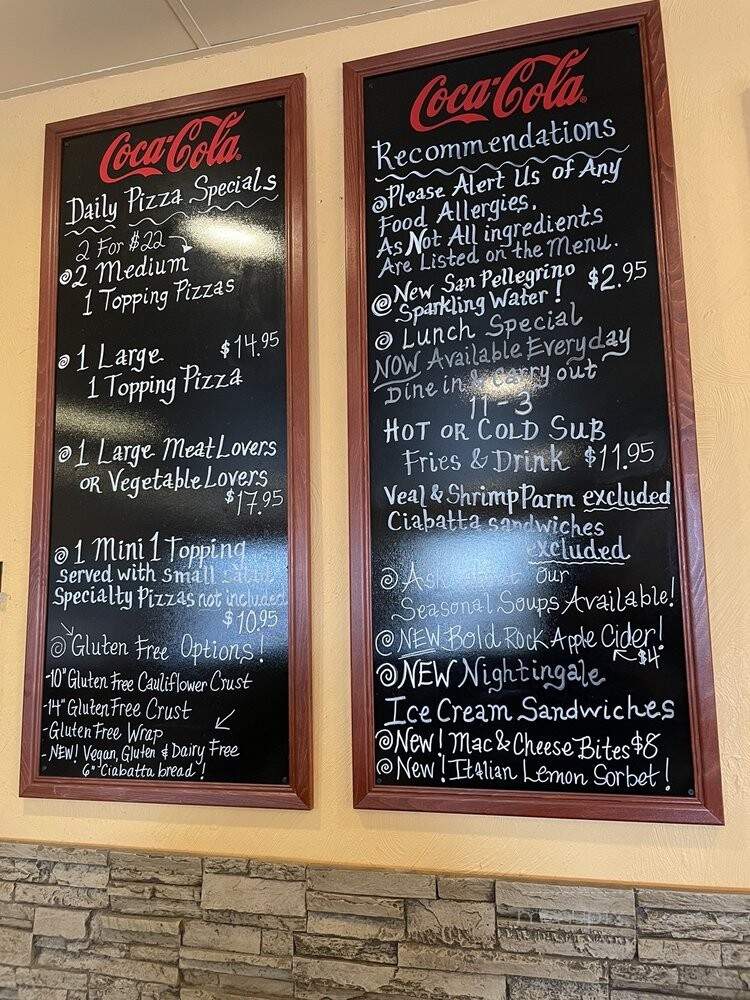 Coca-Cola
Daily Pizza Specials
2 For $22
2 Medium
1 Topping Pizzas
1 Large $14.95
1 Topping Pizza
1 Large Meat Lovers
or Vegetable Lovers
$17.95
1 Mini 1 Topping
served with small salad
Specialty Pizzas not included
$10.95
Gluten Free Options!
-10" Gluten Free Cauliflower Crust
-14" Gluten Free Crust
-Gluten Free Wrap
-NEW! Vegan, Gluten & Dairy Free
6" Ciabatta bread!
Coca-Cola
Recommendations
Please Alert Us of Any
Food Allergies.
As Not All ingredients
Are Listed on the Menu.
New San Pellegrino $2.95
Sparkling Water!
Lunch Special
NOW Available Everyday
Dine in & Carry out
11-3
HOT OR COLD SUB
Fries & Drink $11.95
Veal & Shrimp Parm excluded
Ciabatta sandwiches
excluded
Ask our
Seasonal Soups Available!
NEW Bold Rock Apple Cider!
$4
NEW Nightingale
Ice Cream Sandwiches
New! Mac & Cheese Bites $8
New! Italian Lemon Sorbet!